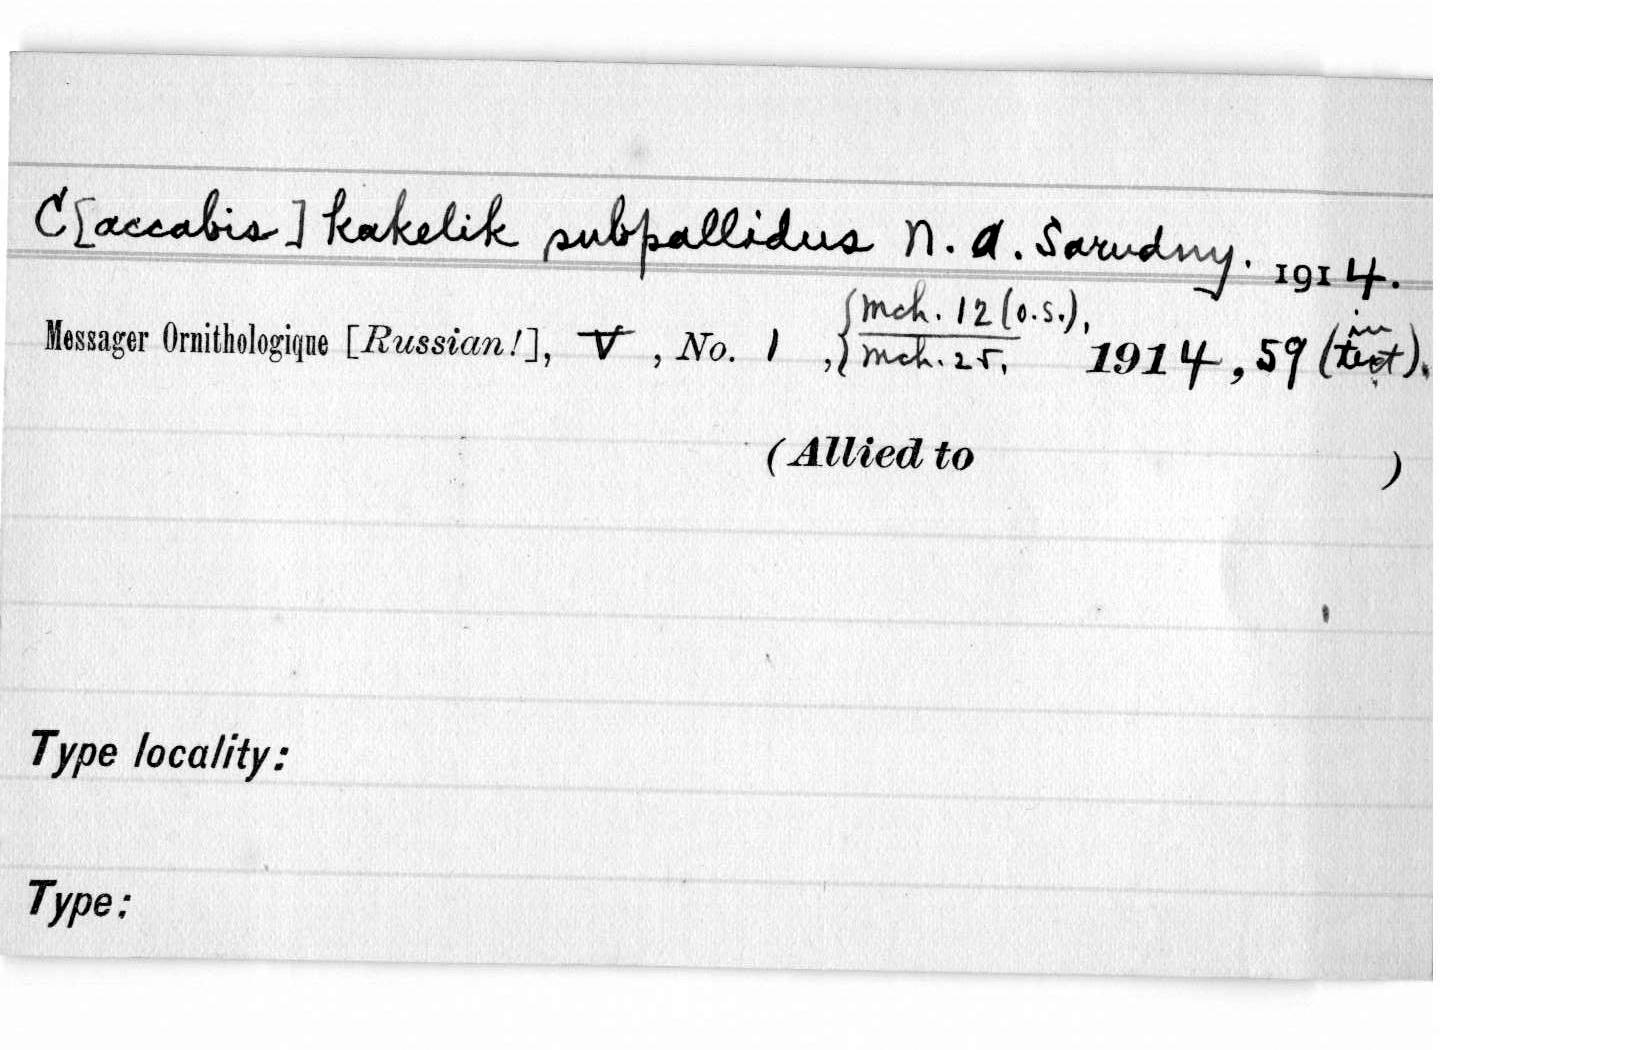 C[accabis] kakelik subpallidus N. A. Sarudny. 1914.
Messager Ornithologique [Russian!], V, No. 1, {Mch. 12 (o.s.), Mch. 25, 1914, 59 (in text).
(Allied to )
Type locality:
Type: